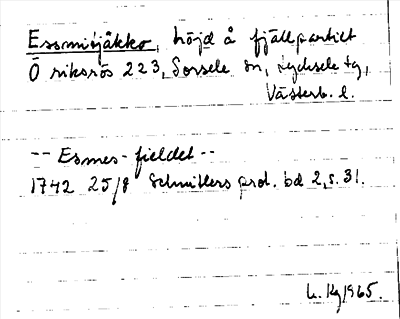 Essmiejåkko, höjd å fjällpartiet
Ö riksrös 223, Sorsele sn, Lycksele tg,
Västerb. l.
-- Esmes-fieldet --
1742 25/8 Schnitlers prot. bd 2, s. 31.
1965.